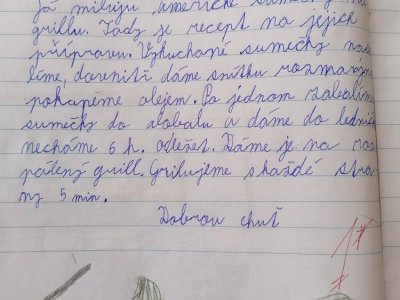 Já miluju americké sumečky na
grillu. Tady je recept na jejich
přípravu. Vykuchané sumečky nas
líme, dovnitř dáme snítku rozmarýnu
pokapeme olejem. Po jednom zabalíme
sumečky do alobalu a dáme do lednice
necháme 6 h. odležet. Dáme je na roz
pálený grill. Grilujeme skaždé stra
ny 5 min.
Dobrou chuť
1*